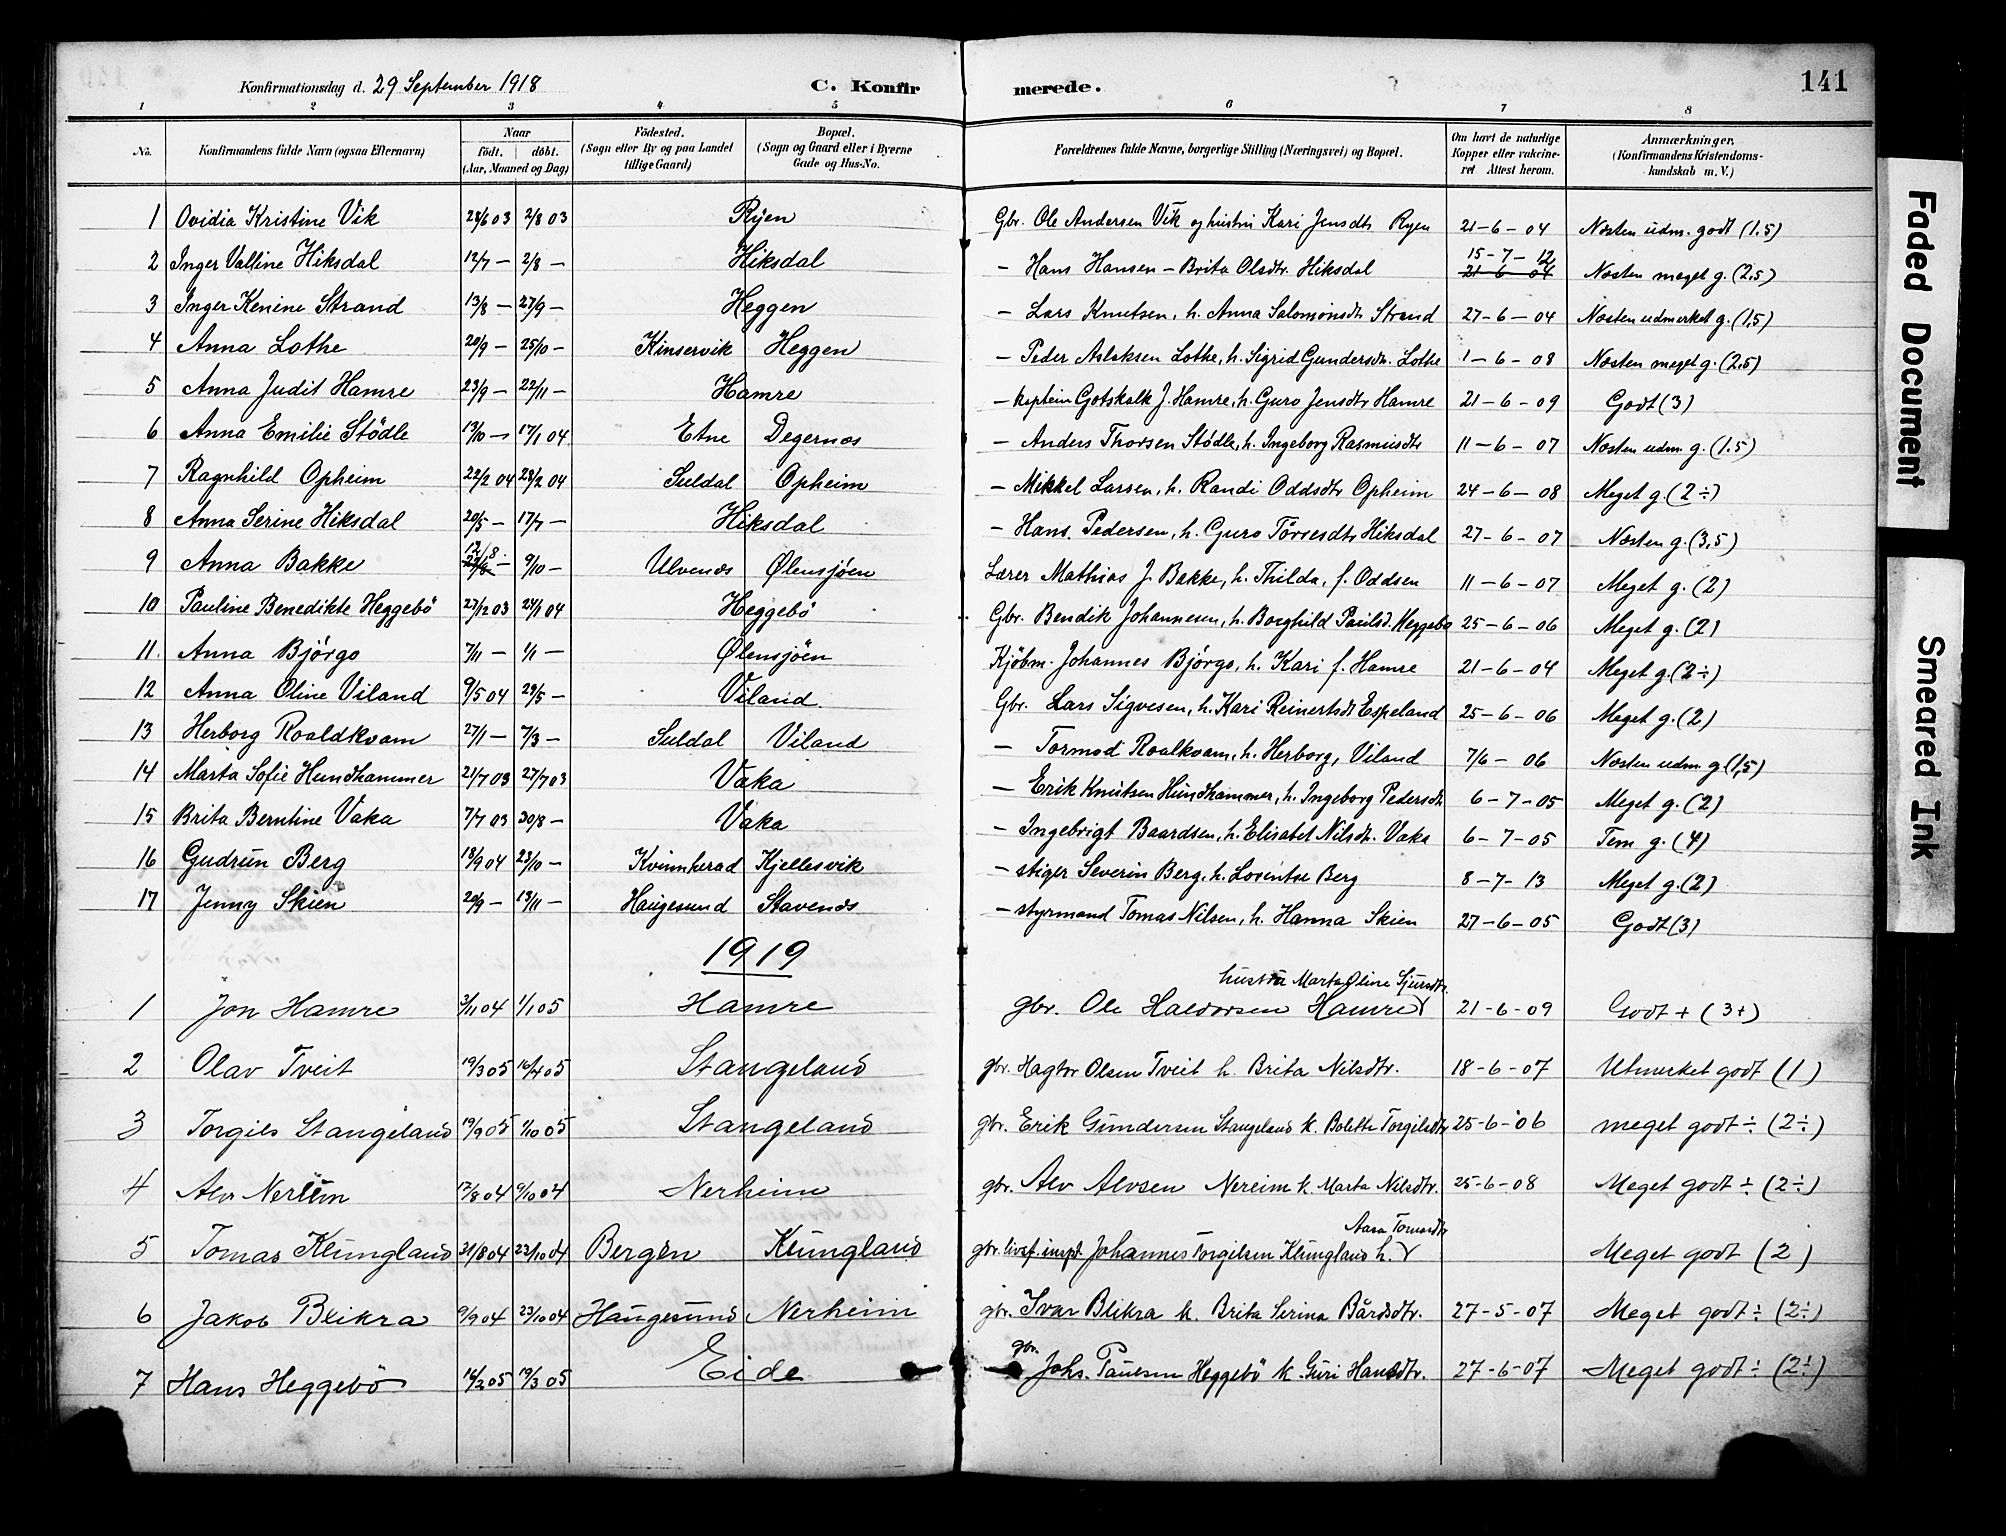 Konfirmationsdag d. 29 September 1918 C. Konfirmerede. 141
1 2 3 4 5 6 7 8
No. Konfirmandens fulde Navn (ogsaa Efternavn) Naar födt. döbt. (Aar, Maaned og Dag) Födested. (Sogn eller By og paa Landet tillige Gaard) Bopæl. (Sogn og Gaard eller i Byerne Gade og Hus-No. Forældrenes fulde Navne, borgerlige Stilling (Næringsvei) og Bopæl. Om havt de naturlige Kopper eller vakcineret Attest herom. Anmærkninger. (Konfirmandens Kristendomskundskab m. V.)
1 Ovidia Kristine Vik 28/6 03 2/8 03 Ryen Gbr. Ole Andersen Vik og hustru Kari Jensdtr Ryen 21-6-04 Næsten udm. godt (1.5)
2 Inger Valline Hiksdal 12/7 - 2/8 - Hiksdal - Hans Hansen - Brita Olsdtr. Hiksdal 15-7-12 21-6-04 Næsten meget g. (2,5)
3 Inger Kenine Strand 13/8 - 27/9 - Heggen - Lars Knutsen, h. Anna Salomonsdtr Strand 27-6-04 Næsten udmerket g. (1,5)
4 Anna Lothe 20/9 - 25/10 - Kinservik Heggen - Peder Aslaksen Lothe, h. Sigrid Gundersdtr. Lothe 1-6-08 Næsten meget g. (2,5)
5 Anna Judit Hamre 23/9 - 22/11 - Hamre - kaptein Gotskalk J. Hamre, h. Guro Jensdtr Hamre 21-6-09 Godt (3)
6 Anna Emilie Stödle 13/10 - 17/1 04 Etne Degernes - Anders Thorsen Stödle, h. Ingeborg Rasmusdtr 11-6-07 Næsten udm. g. (1.5)
7 Ragnhild Opheim 22/2 04 28/2 04 Suldal Opheim - Mikkel Larsen, h. Randi Oddsdtr Opheim 24-6-08 Meget g. (2÷)
8 Anna Serine Hiksdal 20/5 - 17/7 - Hiksdal - Hans Pedersen, h. Guro Törresdtr Hiksdal 27-6-07 Næsten g. (3,5)
9 Anna Bakke 12/8 - 9/10 - Ulvenes Ølensjöen Lærer Mathias J. Bakke, h. Thilda, f. Oddsen 11-6-07 Meget g. (2)
10 Pauline Benedikte Heggebö 27/12 03 24/1 04 Heggebö Gbr. Bendik Johannesen, h. Borghild Paulsd. Heggebö 25-6-06 Meget g. (2)
11. Anna Björgo 7/11 - 1/1 - Ølensjöen Kjöbm. Johannes Björgo, h. Kari f. Hamre 21-6-04 Meget g. (2÷)
12 Anna Oline Viland 9/5 04 29/5 - Viland Gbr. Lars Sigvesen, h. Kari Reinertsdtr Espeland 25-6-06 Meget g. (2)
13 Herborg Roaldkvam 27/1 - 7/3 - Suldal Viland - Tormod Roalkvam, h. Herborg, Viland 7/6 - 06 Næsten udm. g. (1,5)
14 Marta Sofie Hundhammer 21/7 03 27/7 03 Vaka - Erik Knutsen Hundhammer, h. Ingeborg Pedersdtr 6-7-05 Meget g. (2)
15 Brita Berntine Vaka 7/7 03 30/8 - Vaka - Ingebrigt Baardsen, h. Elisabet Nilsdtr. Vaka 6-7-05 Tem. g. (4)
16 Gudrun Berg 18/9 04 23/10 - Kvinnherad Kjellesvik - stiger Severin Berg, h. Losentse Berg 8-7-13 Meget g. (2)
17 Jenny Skien 20/9 - 13/11 - Haugesund Stavenes - styrmand Tomas Nilsen, h. Hanna Skien 27-6-05 Godt (3)
1919
1 Jon Hamre 3/11 04 1/1 05 Hamre gbr. Ole Haldorsen Hamre hustru Marta Oline Sjursdtr. 21-6-09 Godt + (3+)
2 Olav Tveit 19/3 05 16/4 05 Stangeland gbr. Hagtor Olsen Tveit h. Brita Nilsdtr. 18-6-07 Utmerket godt (1)
3 Torgils Stangeland 19/9 05 1/10 05 Stangeland gbr. Erik Gundersen Stangeland h. Bolette Torgilsdtr 25-6-06 meget godt ÷ (2÷)
4 Alv Nereim 17/8 04 9/10 04 Nerheim gbr. Alv Alvsen Nereim h. Marta Nilsdtr. 25-6-08 Meget godt ÷ (2÷)
5 Tomas Klungland 31/8 04 23/10 04 Bergen Klungland gbr. livsf. insp. Johannes Torgilsen Klungland h. Aasa Tomasdtr Meget godt (2)
6 Jakob Blikra 9/9 04 23/10 04 Haugesund Nerheim gbr. Ivar Blikra h. Brita Serina Bårdsdtr. 27-5-07 Meget godt ÷ (2÷)
7 Hans Heggebö 16/2 05 19/3 05 Eide gbr. Johs. Paulsen Heggebö h. Guri Hansdtr. 27-6-07 Meget godt ÷ (2÷)
Faded Document
Smeared Ink